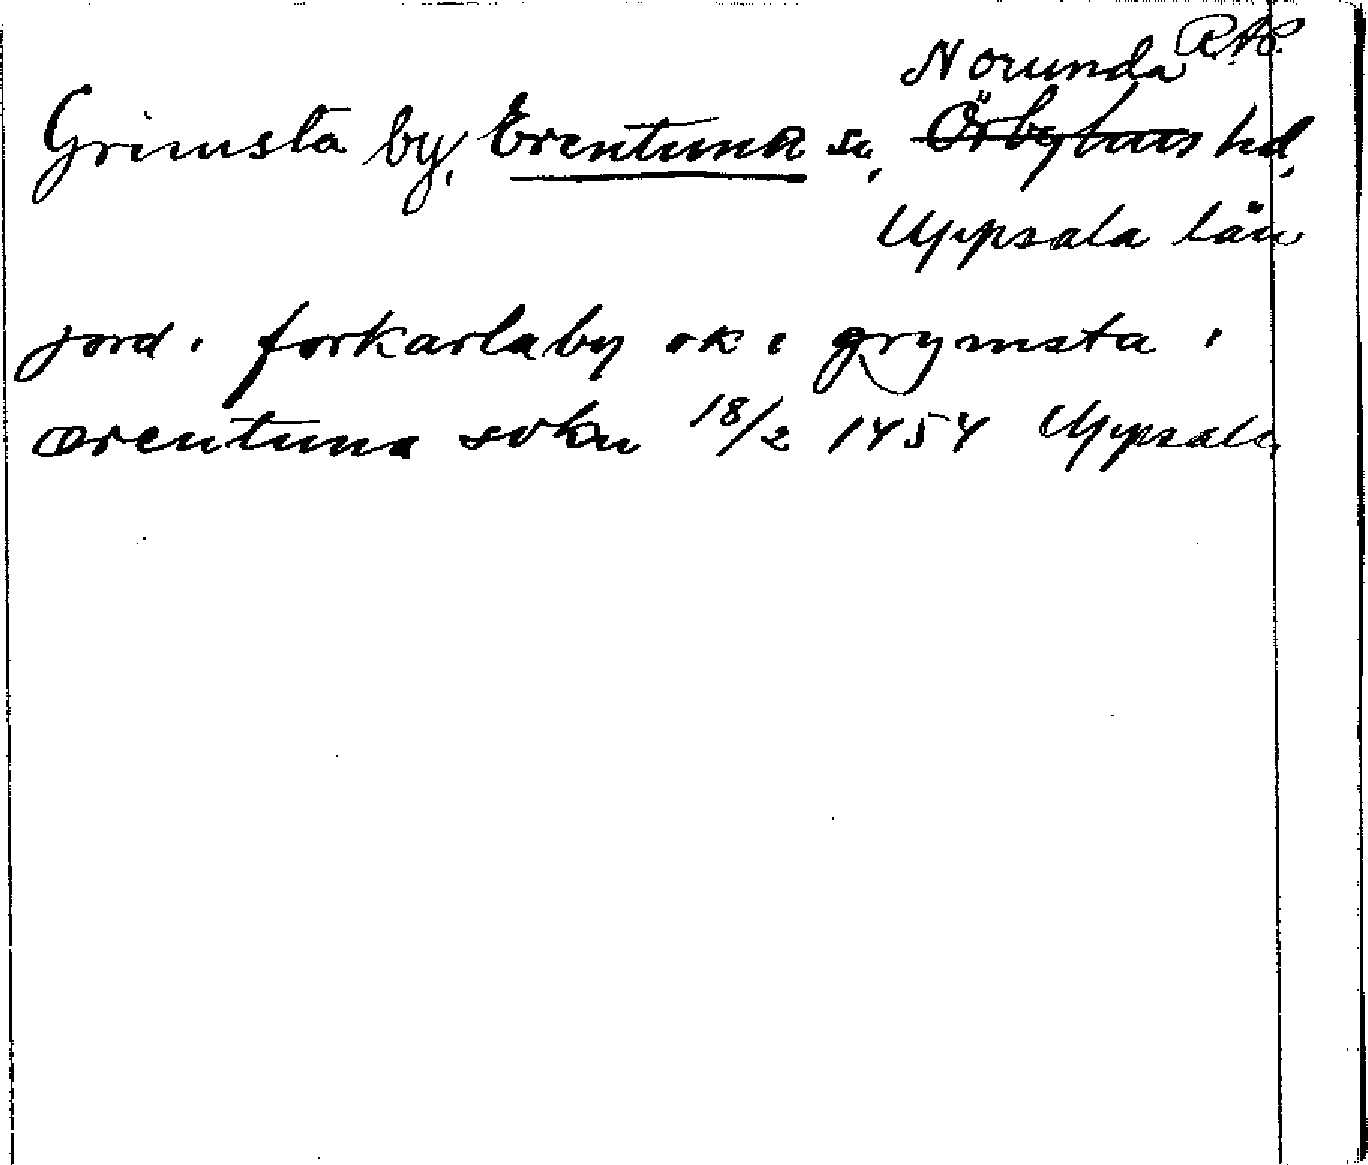 Norunda R.A.P.
Grimsta by, Erentuna sn, Örbyhus hd,
Uppsala län
jord i forkarlaby ok i grymsta i
ærentuna sokn 18/2 1454 Uppsala